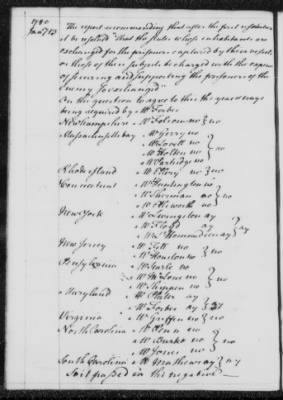 1780
Jany 13
The report recommending that after the first resolution
it be resolved That the State whose inhabitants are
exchanged for the prisoners captured by their vessels
or those of their subjects be charged with the expence
of securing and supporting the prisoners of the
Enemy so exchanged
On the question to agree to this the yeas & nays
being required by Mr Forbes
New hampshire Mr Folsom no } no
Massachusetts bay Mr Gerry no
Mr Lovell no } no
Mr Holten no
Mr Partridge no
Rhode island Mr Ellery no } no
Connecticut Mr Huntington no
Mr Sherman no } no
Mr Ellsworth no
New York Mr Livingston ay
Mr Floyd ay } ay
Mr L'Hommedieu ay
New Jersey Mr Fell no } no
Mr Houston no
Pensylvania Mr Searle no
Mr McLene no } no
Mr Simpson no
Maryland Mr Plater ay
Mr Forbes ay }
Virginia Mr Griffin no } no
North Carolina Mr Penn no
Mr Burke no } no
Mr Jones no
South Carolina Mr Mathews ay } ay
So it passed in the negative